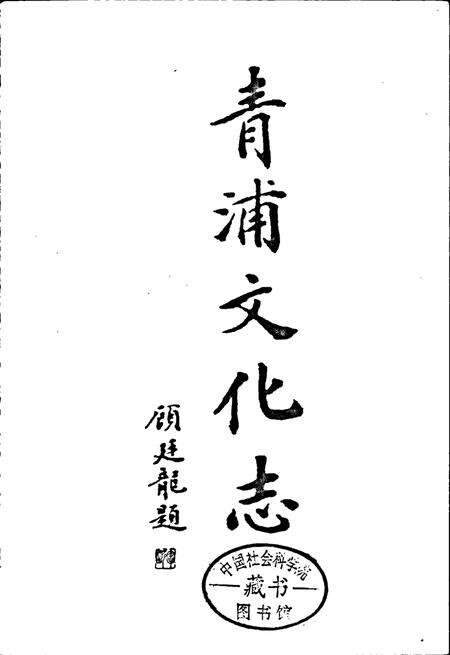 青浦文化志
顾廷龙题
中国社会科学院
藏书
图书馆